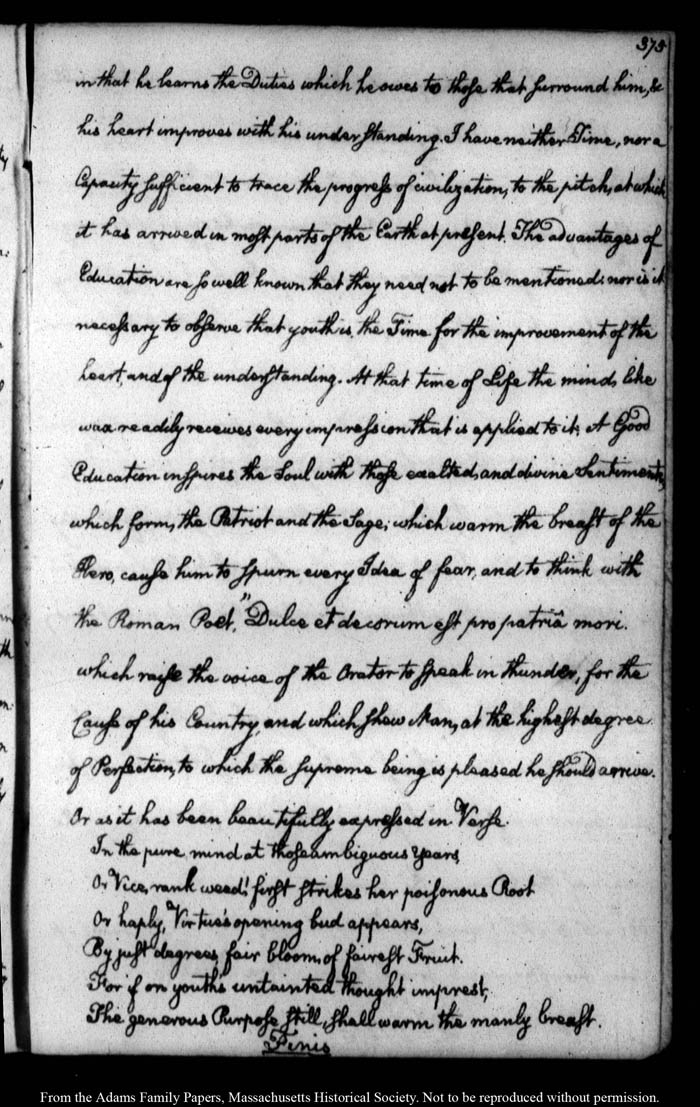 375
in that he learns the Duties which he owes to those that surround him, &
his heart improves with his understanding. I have neither Time, nor a
Capacity sufficient to trace the progress of civilization, to the pitch, at which
it has arrived in most parts of the Earth at present. The advantages of
Education are so well known that they need not to be mentioned: nor is it
necessary to observe that youth is the Time for the improvement of the
heart, and of the understanding. At that time of Life the mind, like
wax readily receives every impression that is applied to it. A Good
Education inspires the Soul with those exalted, and divine Sentiments,
which form, the Patriot and the Sage; which warm the breast of the
Hero, cause him to spurn every Idea of fear, and to think with
the Roman Poet, "Dulce et decorum est pro patriâ mori.
which raise the voice of the Orator to speak in thunder, for the
Cause of his Country, and which shew Man, at the highest degree
of Perfection, to which the supreme being is pleased he should arrive.
Or as it has been beautifully expressed in Verse.
In the pure mind at those ambiguous Years,
Or Vice, rank weed! first strikes her poisonous Root
Or haply, Virtue's opening bud appears,
By just degrees, fair bloom, of fairest Fruit.
For if on youth's untainted thought imprest,
The generous Purpose still, shall warm the manly breast.
Finis
From the Adams Family Papers, Massachusetts Historical Society. Not to be reproduced without permission.